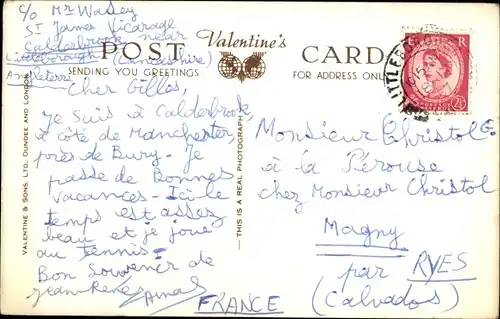 c/o Mr Wasey
St James Vicarage
Calderbrook near
Littleborough (Lancashire)
Angleterre
POST Valentine's CARD
SENDING YOU GREETINGS FOR ADDRESS ONLY
Cher Gilles,
Je suis à Calderbrook
à côté de Manchester,
près de Bury. Je
passe de Bonnes
Vacances. Ici le
temps est assez
beau et je joue
au tennis.
Bon souvenir de
Jean-René
VALENTINE & SONS, LTD., DUNDEE AND LONDON.
THIS IS A REAL PHOTOGRAPH
LITTLEBOROUGH
2½
Monsieur Christol G.
à la Pérouse
chez Monsieur Christol
Magny
par RYES
(Calvados)
FRANCE